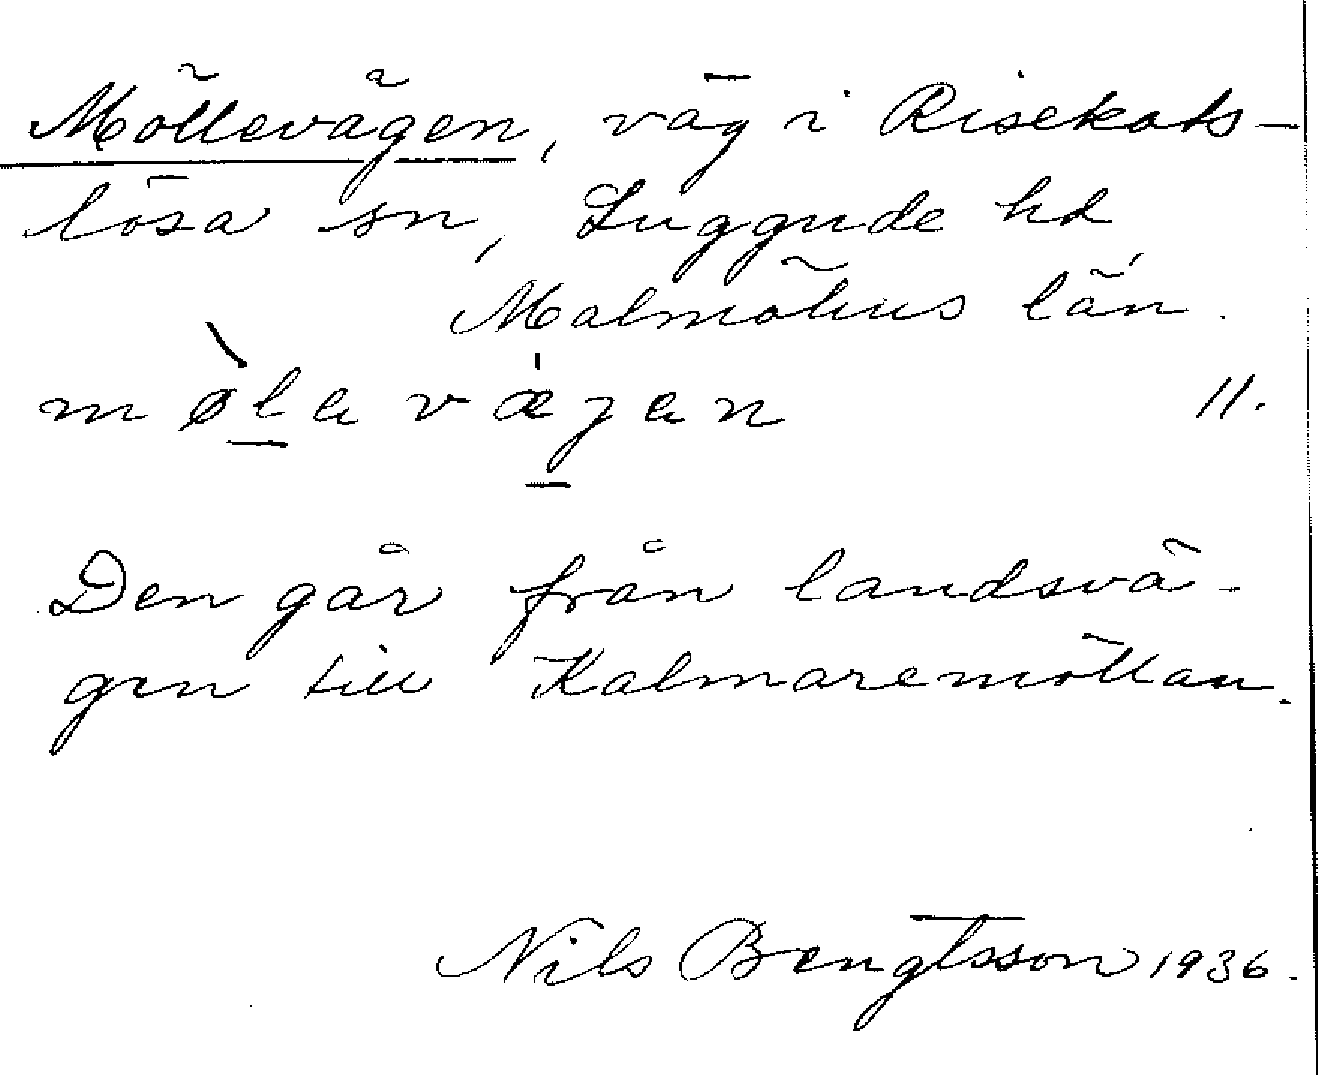 Möllevägen, väg i Risekats-
lösa sn, Luggude hd,
Malmöhus län.
mø̀lavæ̍jan 11.
Den går från landsvä-
gen till Kalmaremöllan.
Nils Bengtsson 1936.